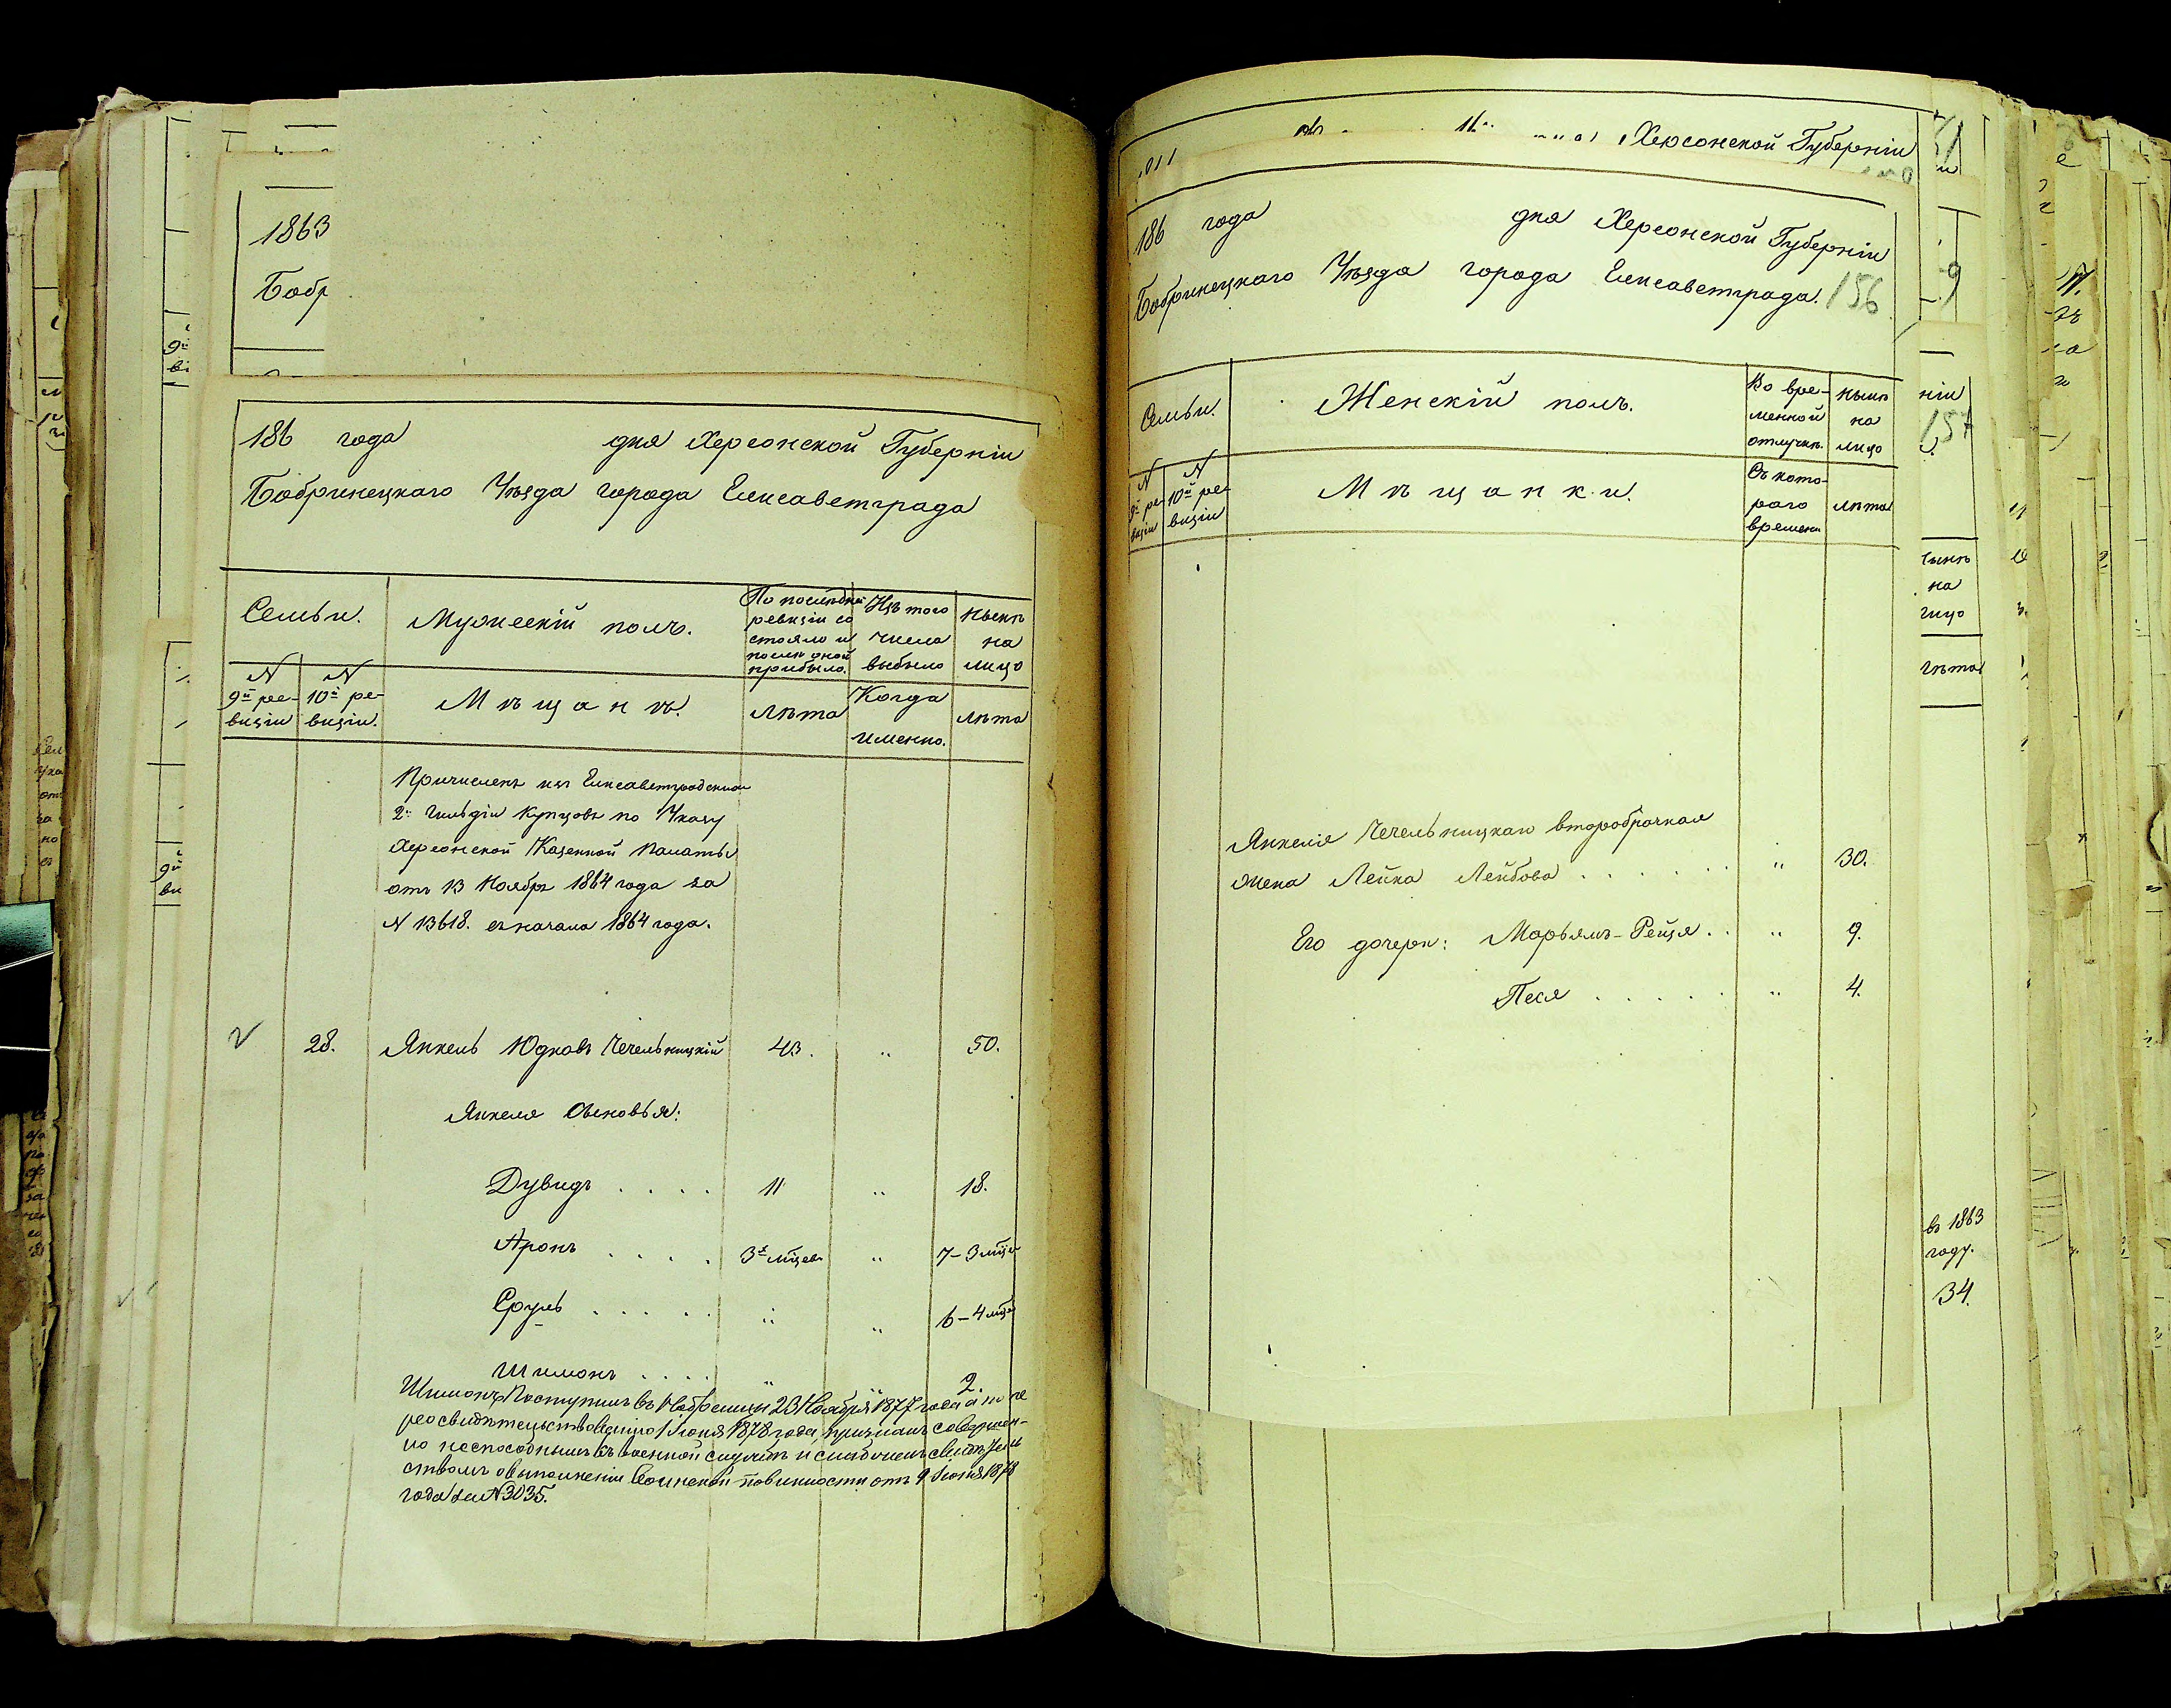 1863
Бобр
186 года дня Херсонской Губерніи
Бобринецкаго Уѣзда города Елисаветграда
Семьи.
Мужескій полъ.
По послѣдней ревизіи состояло и послѣ оной прибыло.
Изъ того числа выбыло
Нынѣ на лицо
N 9й ревизіи
N 10й ревизіи.
Мѣщанъ.
Лѣта
Когда именно.
Лѣта
Причисленъ изъ Елисаветградскихъ
2й гильдіи купцовъ по Указу
Херсонской Казенной Палаты
отъ 13 Ноября 1864 года за
N 13618. съ начала 1864 года.
28. Янкель Юдковъ Чечельницкій 43. " 50.
Янкеля сыновья:
Дувидъ . . . . 11 " 18.
Аронъ . . . . 3х мцевъ " 7-3 мце
Сруль . . . . . " " 6-4 мце
Шимонъ . . . . " " 2.
Шимонъ Поступилъ въ 23 Ноября 1877 года и по пе
реосвидѣтельствованію 1 Іюня 1878 года, признанъ совершен-
но неспособнымъ къ военной службѣ и снабженъ свидѣтель
ствомъ о выполненіи воинской повинности отъ 9 Іюня 1878
года за N 3035.
Херсонской Губерніи
186 года дня Херсонской Губерніи
Бобринецкаго Уѣзда города Елисаветграда. 156
Семьи.
Женскій полъ.
Во временной отлучкѣ.
Нынѣ на лицо
N 9й ревизіи
N 10й ревизіи
Мѣщанки.
Съ котораго времени
Лѣта
Янкеля Чечельницкаго второбрачная
жена Лейка Лейбова . . . . . . " 30.
Его дочери: Марьямъ-Рейзя . . " 9.
Песя . . . . . " 4.
ніи
157
на
лицо
лѣта
въ 1863
году.
34.